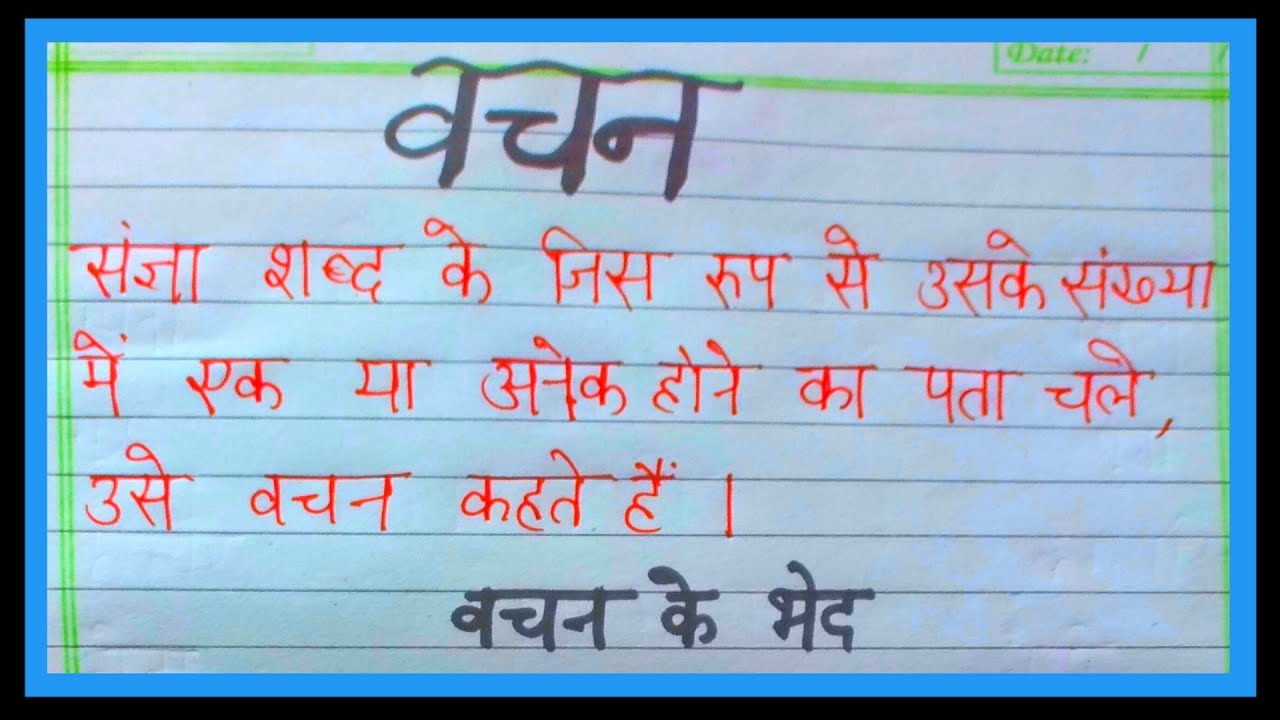 Date: / /
वचन
संज्ञा शब्द के जिस रुप से उसके संख्या
में एक या अनेक होने का पता चले,
उसे वचन कहते हैं ।
वचन के भेद